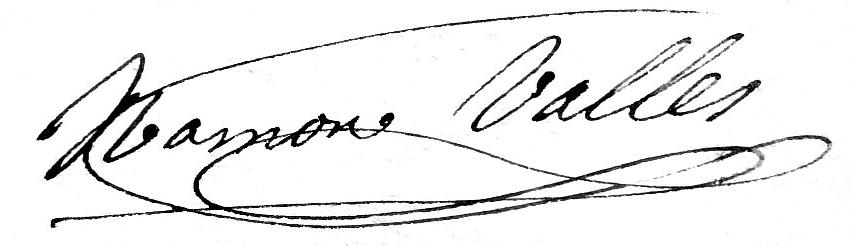 Ramon Valles